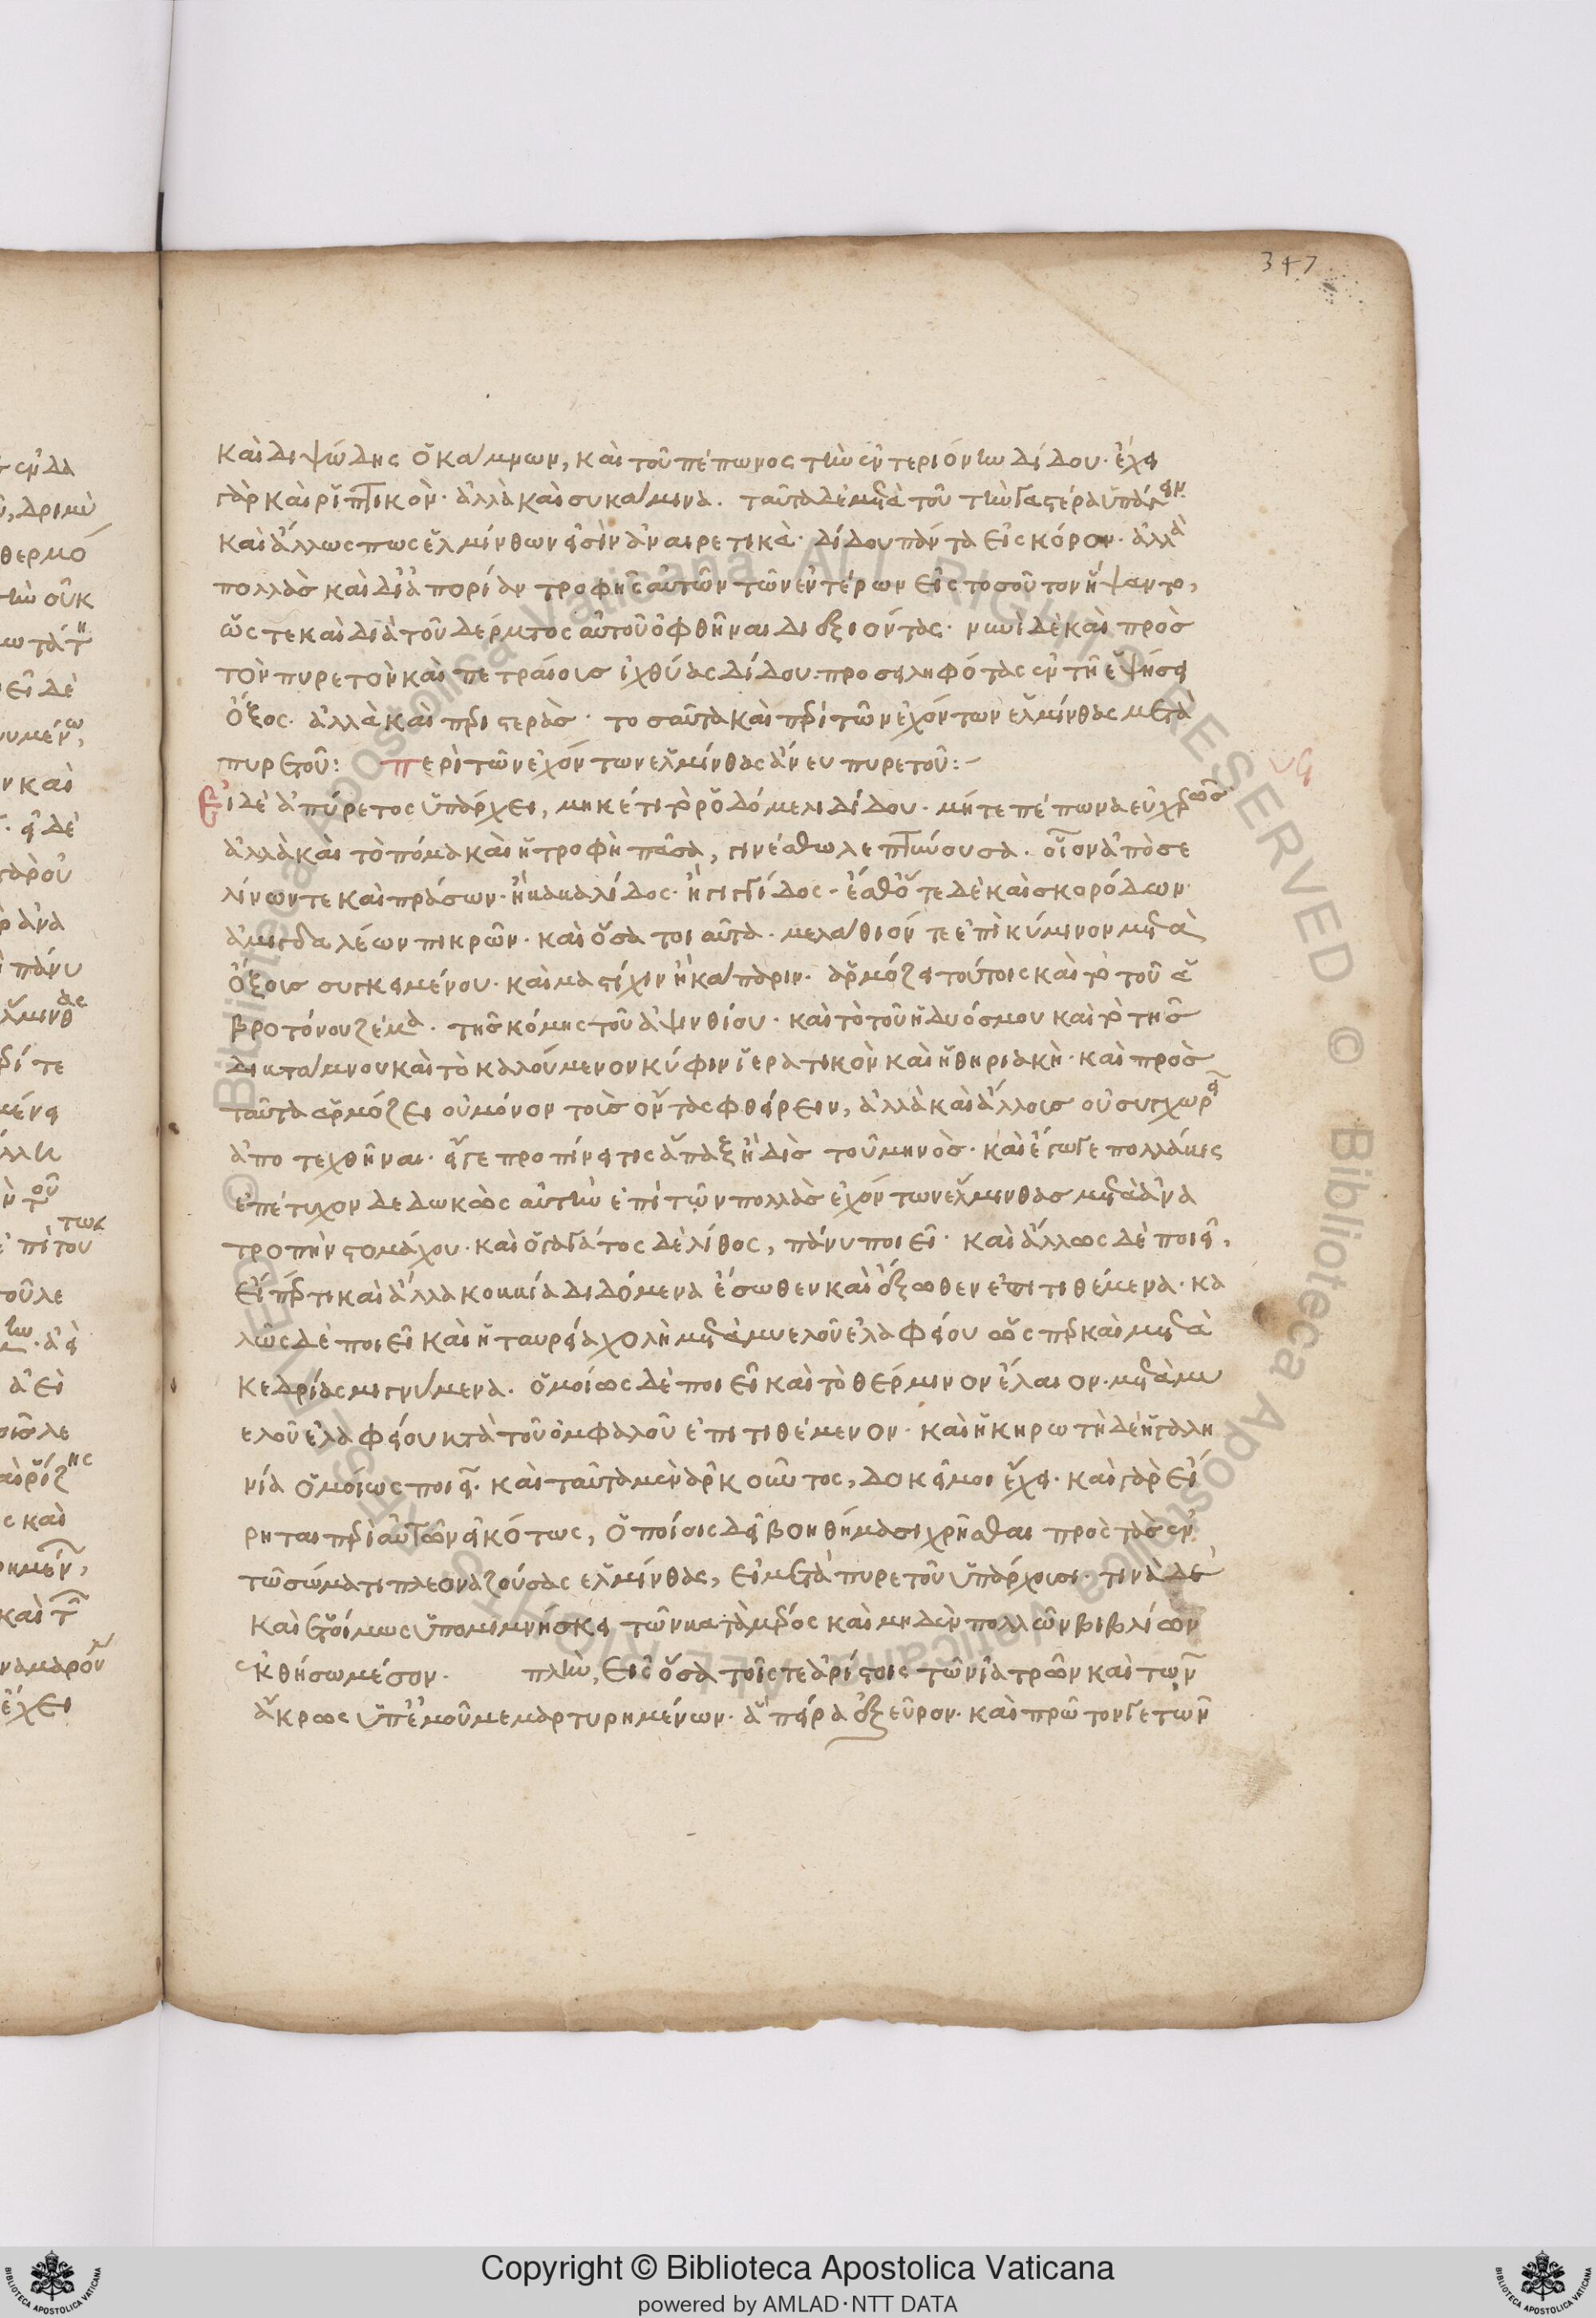 347
καὶ διψώδης ὁ κάμνων, καὶ τοῦ πέπωνος τὴν ἐντεριώνην δίδου· ἔχει
γὰρ καὶ ῥιπτικὸν· ἀλλὰ καὶ συκάμινα. ταῦτα δὲ μετὰ τοῦ τὴν γαστέρα ὑπάγειν
καὶ ἄλλως πως ἑλμίνθων εἰσὶν ἀναιρετικὰ· δίδου πάντα εἰς κόρον· ἀλλὰ
πολλὰς καὶ δι' ἀπορίαν τροφῆς αὐτῶν τῶν ἐντέρων εἰς τοσοῦτον ἥψαντο,
ὥστε καὶ διὰ τοῦ δέρματος αὐτοῦ ὀφθῆναι διεξιόντας· νυνὶ δὲ καὶ πρὸς
τὸν πυρετὸν καὶ πετραίους ἰχθύας δίδου· προσειληφότας ἐν τῇ ἑψήσει
ὄξος· ἀλλὰ καὶ περιστερὰς· τοσαῦτα καὶ περὶ τῶν ἐχόντων ἕλμινθας μετὰ
πυρετοῦ: περὶ τῶν ἐχόντων ἕλμινθας ἄνευ πυρετοῦ:-
Εἰ δὲ ἀπύρετος ὑπάρχει, μηκέτι τὸ ῥοδόμελι δίδου· μήτε πέπωνα εὐχερῶς
ἀλλὰ καὶ τὸ πόμα καὶ ἡ τροφὴ πᾶσα, γινέσθω λεπτύνουσα. οἷον ἀπὸ σε
λίνων τε καὶ πράσων· ἢ καυκαλίδος· ἢ γιγγίδος· ἔσθ' ὅτε δὲ καὶ σκορόδων·
ἀμυγδαλέων πικρῶν· καὶ ὅσα τοιαῦτα· μελάνθιόν τε ἐπὶ κύμινον μετὰ
ὄξους συγκειμένου· καὶ μαστίχιν ἢ κάππαριν· ἁρμόζει τούτοις καὶ τὸ τοῦ ἁ
βροτόνου ζέμα. τῆς κόμης τοῦ ἀψινθίου· καὶ τὸ τοῦ ἡδυόσμου καὶ τὸ τῆς
δικτάμνου καὶ τὸ καλούμενον κύφιν ἱερατικὸν καὶ ἡ θηριακὴ· καὶ πρὸς
ταῦτα ἁρμόζει οὐ μόνον τοὺς ὄντας φθείρειν, ἀλλὰ καὶ ἄλλους οὐ συγχωρεῖ
ἀποτεχθῆναι· εἴγε προπίνει τις ἅπαξ ἢ δὶς τοῦ μηνὸς· καὶ ἔγωγε πολλάκις
ἐπέτυχον δεδωκὼς αὐτὴν ἐπὶ τῶν πολλὰς ἐχόντων ἕλμινθας μετὰ ἀνα
τροπὴν στομάχου· καὶ ὁ γαγάτος δὲ λίθος, πάνυ ποιεῖ· καὶ ἄλλως δὲ ποιεῖ,
εἴπερ τι καὶ ἄλλα κοινὰ διδόμενα ἔσωθεν καὶ ἔξωθεν ἐπιτιθέμενα· κα
λῶς δὲ ποιεῖ καὶ ἡ ταυρεία χολὴ μετὰ μυελοῦ ἐλαφείου ὥσπερ καὶ μετὰ
κεδρίας μιγνύμενα. ὁμοίως δὲ ποιεῖ καὶ τὸ θέρμινον ἔλαιον· μετὰ μυ
ελοῦ ἐλαφείου κατὰ τοῦ ὀμφαλοῦ ἐπιτιθέμενον· καὶ ἡ κηρωτὴ δὲ ἡ γαλη
νία ὁμοίως ποιεῖ. καὶ ταῦτα μὲν ἀρκούντως, δοκεῖ μοι ἔχει· καὶ γὰρ εἴ
ρηται περὶ αὐτῶν εἰκότως, ὁποίοις δεῖ βοηθήμασι χρῆσθαι πρὸς τὰς ἐν
τῷ σώματι πλεοναζούσας ἕλμινθας, εἰ μετὰ πυρετοῦ ὑπάρχουσι· τινὰ δὲ
καὶ ἑτοίμως ὑπομιμνήσκει τῶν κατὰ μέρος καὶ μηδὲν πολλῶν βιβλίων
ἐκθήσωμέσον. πλὴν, εἰς ὅσα τοῖς τε ἀρίστοις τῶν ἰατρῶν καὶ τῶν
ἄκρως ὑπ' ἐμοῦ μεμαρτυρημένων· ἃ πείρα ἐξεῦρον· καὶ πρῶτον γε τῶν